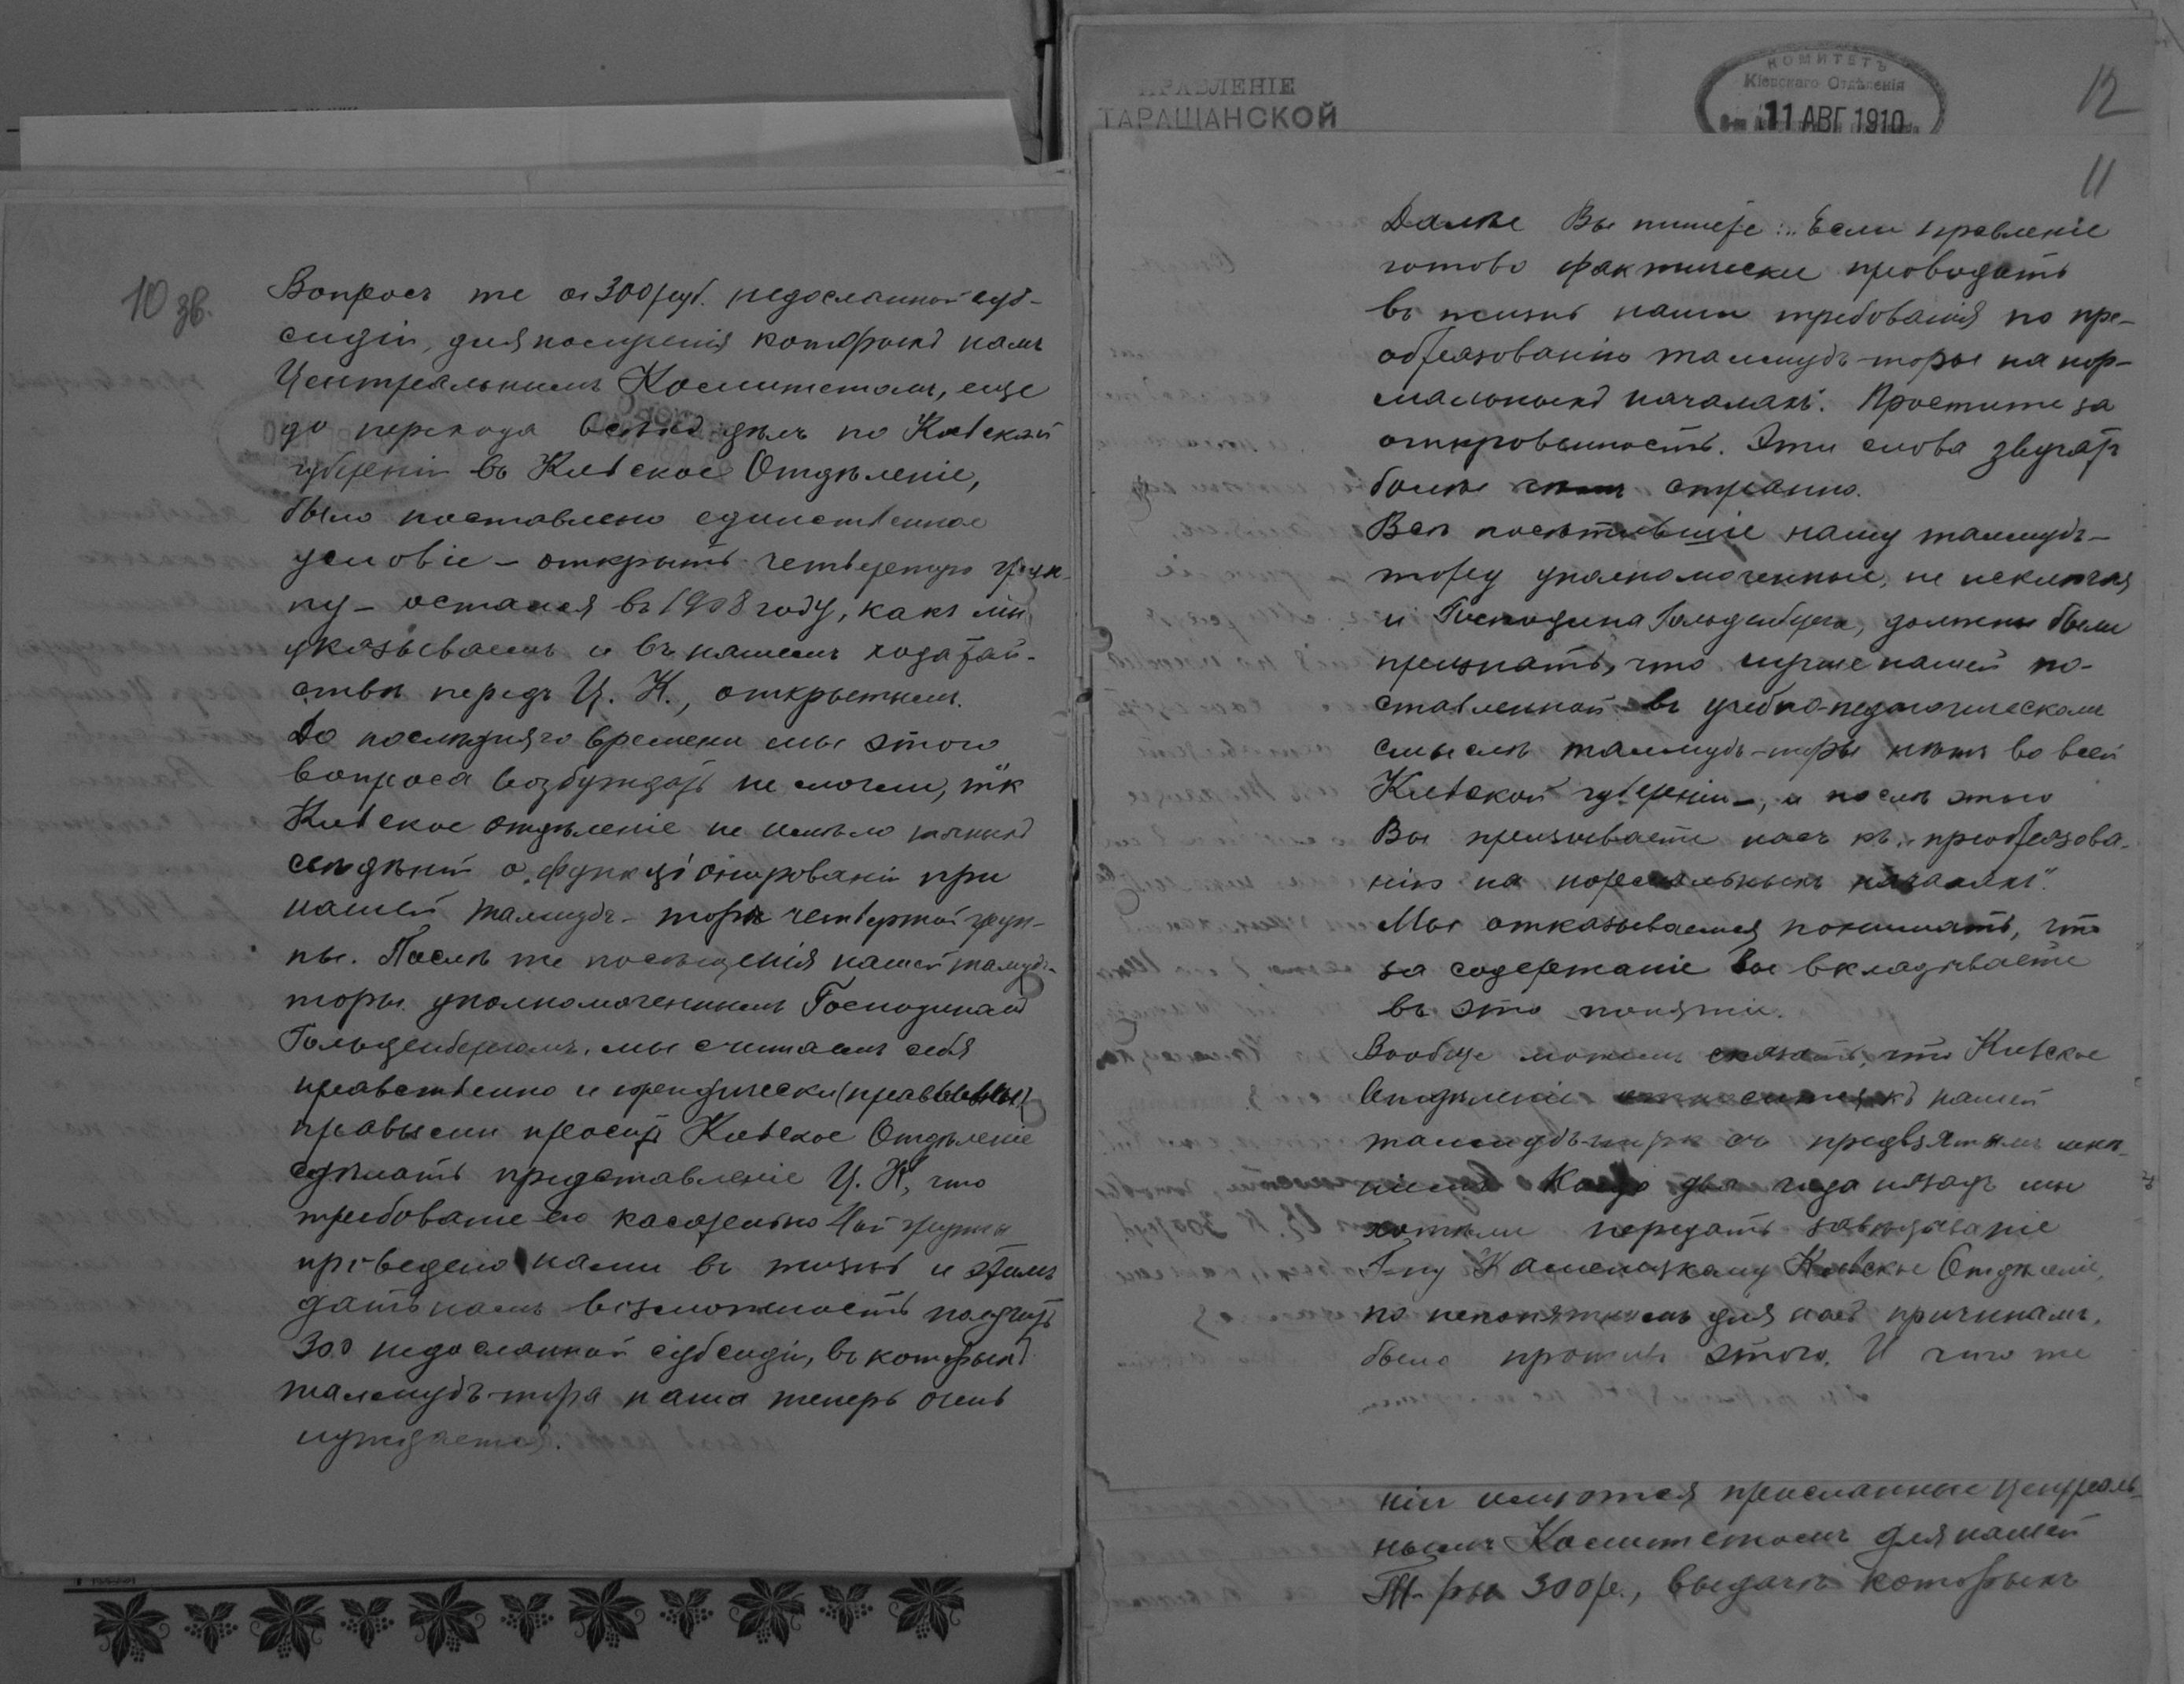 10 зв.
Вопросъ же о 300 руб. недосланной суб-
сидіи, для полученія которыхъ намъ
Центральнымъ Комитетомъ, еще
до перехода всѣхъ дѣлъ по Кіевской
губерніи въ Кіевское Отдѣленіе,
было поставлено единственное
условіе – открыть четвертую груп-
пу – остался въ 1908 году, какъ мы
указываемъ и въ нашемъ ходатай-
ствѣ передъ Ц. К., открытымъ.
До послѣдняго времени мы этого
вопроса возбуждать не могли, т.к
Кіевское отдѣленіе не имѣло точныхъ
свѣдѣній о функціонированіи при
нашей талмудъ-торѣ четвертой груп-
пы. Послѣ же посѣщенія нашей талмудъ-
торы уполномоченнымъ Господиномъ
Гольденбергомъ, мы считаемъ себя
нравственно и юридически
правыми просить Кіевское Отдѣленіе
сдѣлать представленіе Ц. К, что
требованіе его касательно 4ой группы
проведено нами въ жизнь и этимъ
дать намъ возможность получить
300 недосланной субсидіи, въ которыхъ
талмудъ-тора наша теперь очень
нуждается.
ПРАВЛЕНІЕ
ТАРАЩАНСКОЙ
КОМИТЕТЪ
Кіевскаго Отдѣленія
11 АВГ 1910
12
11
Далѣе Вы пишете: „Если правленіе
готово фактически проводить
въ жизнь наши требованія по пре-
образованію талмудъ-торы на нор-
мальныхъ началахъ. Простите за
откровенность. Эти слова звучатъ
болѣе чѣмъ странно.
Всѣ посѣтившіе нашу талмудъ-
тору уполномоченные, не исключая
и Господина Гольденберга, должны были
признать, что лучше нашей по-
ставленной въ учебно-педагогическомъ
смыслѣ талмудъ-торы нѣтъ во всей
Кіевской губерніи –, и послѣ этого
Вы призываете насъ къ „преобразова-
нію на нормальныхъ началахъ".
Мы отказываемся понимать, что
за содержаніе Вы вкладываете
въ это понятіе.
Вообще можемъ сказать, что Кіевское
Отдѣленіе относится къ нашей
талмудъ-торѣ съ предвзятымъ мнѣ-
ніемъ. Когда два года назадъ мы
хотѣли передать завѣдываніе
Г-ну Каменецкому Кіевское Отдѣленіе,
по непонятнымъ для насъ причинамъ,
было противъ этого. И что же
ніи имѣются присланные Централь-
нымъ Комитетомъ для нашей
Т-ры 300 р., выдачи которыхъ